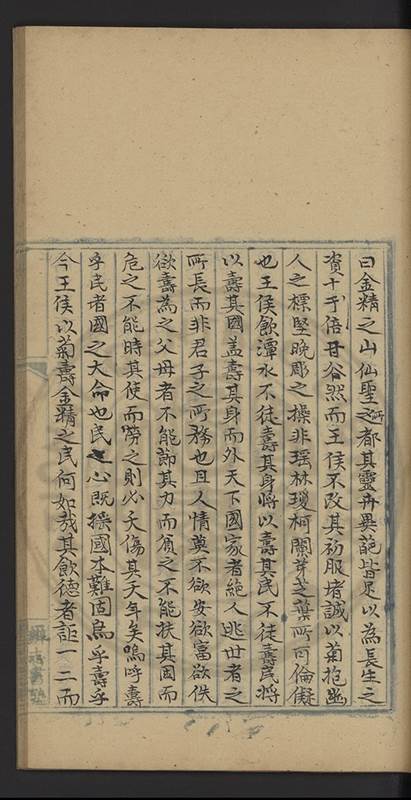 曰金精之山仙聖之所都其靈丹異葩皆足以為長生之
資十千倍甘谷然而王侯不改其初服者誠以菊抱幽
人之標堅晚彫之操非瑤林瓊柯蘭芽芝藥所可倫儗
也王侯飲潭水不徒壽其身將以壽其民不徒壽民將
以壽其國盖壽其身而外天下國家者絕人逃世者之
所長而非君子之所務也且人情莫不欲安欲富欲佚
欲壽為之父母者不能節其力而須之不能扶其困而
危之不能時其使而勞之則必夭傷其天年矣嗚呼壽
乎民者國之大命也民之心既搖國本難固烏乎壽乎
今王侯以菊壽金精之民何如哉其飲德者詎一二而